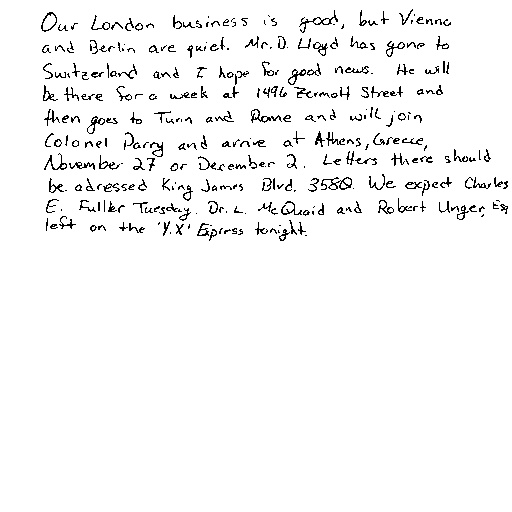 Our London business is good, but Vienna
and Berlin are quiet. Mr. D. Lloyd has gone to
Switzerland and I hope for good news. He will
be there for a week at 1496 Zermott Street and
then goes to Turin and Rome and will join
Colonel Parry and arrive at Athens, Greece,
November 27 or December 2. Letters there should
be adressed King James Blvd. 3580. We expect Charles
E. Fuller Tuesday. Dr. L. McQuaid and Robert Unger, Esq
left on the 'Y.X' Express tonight.